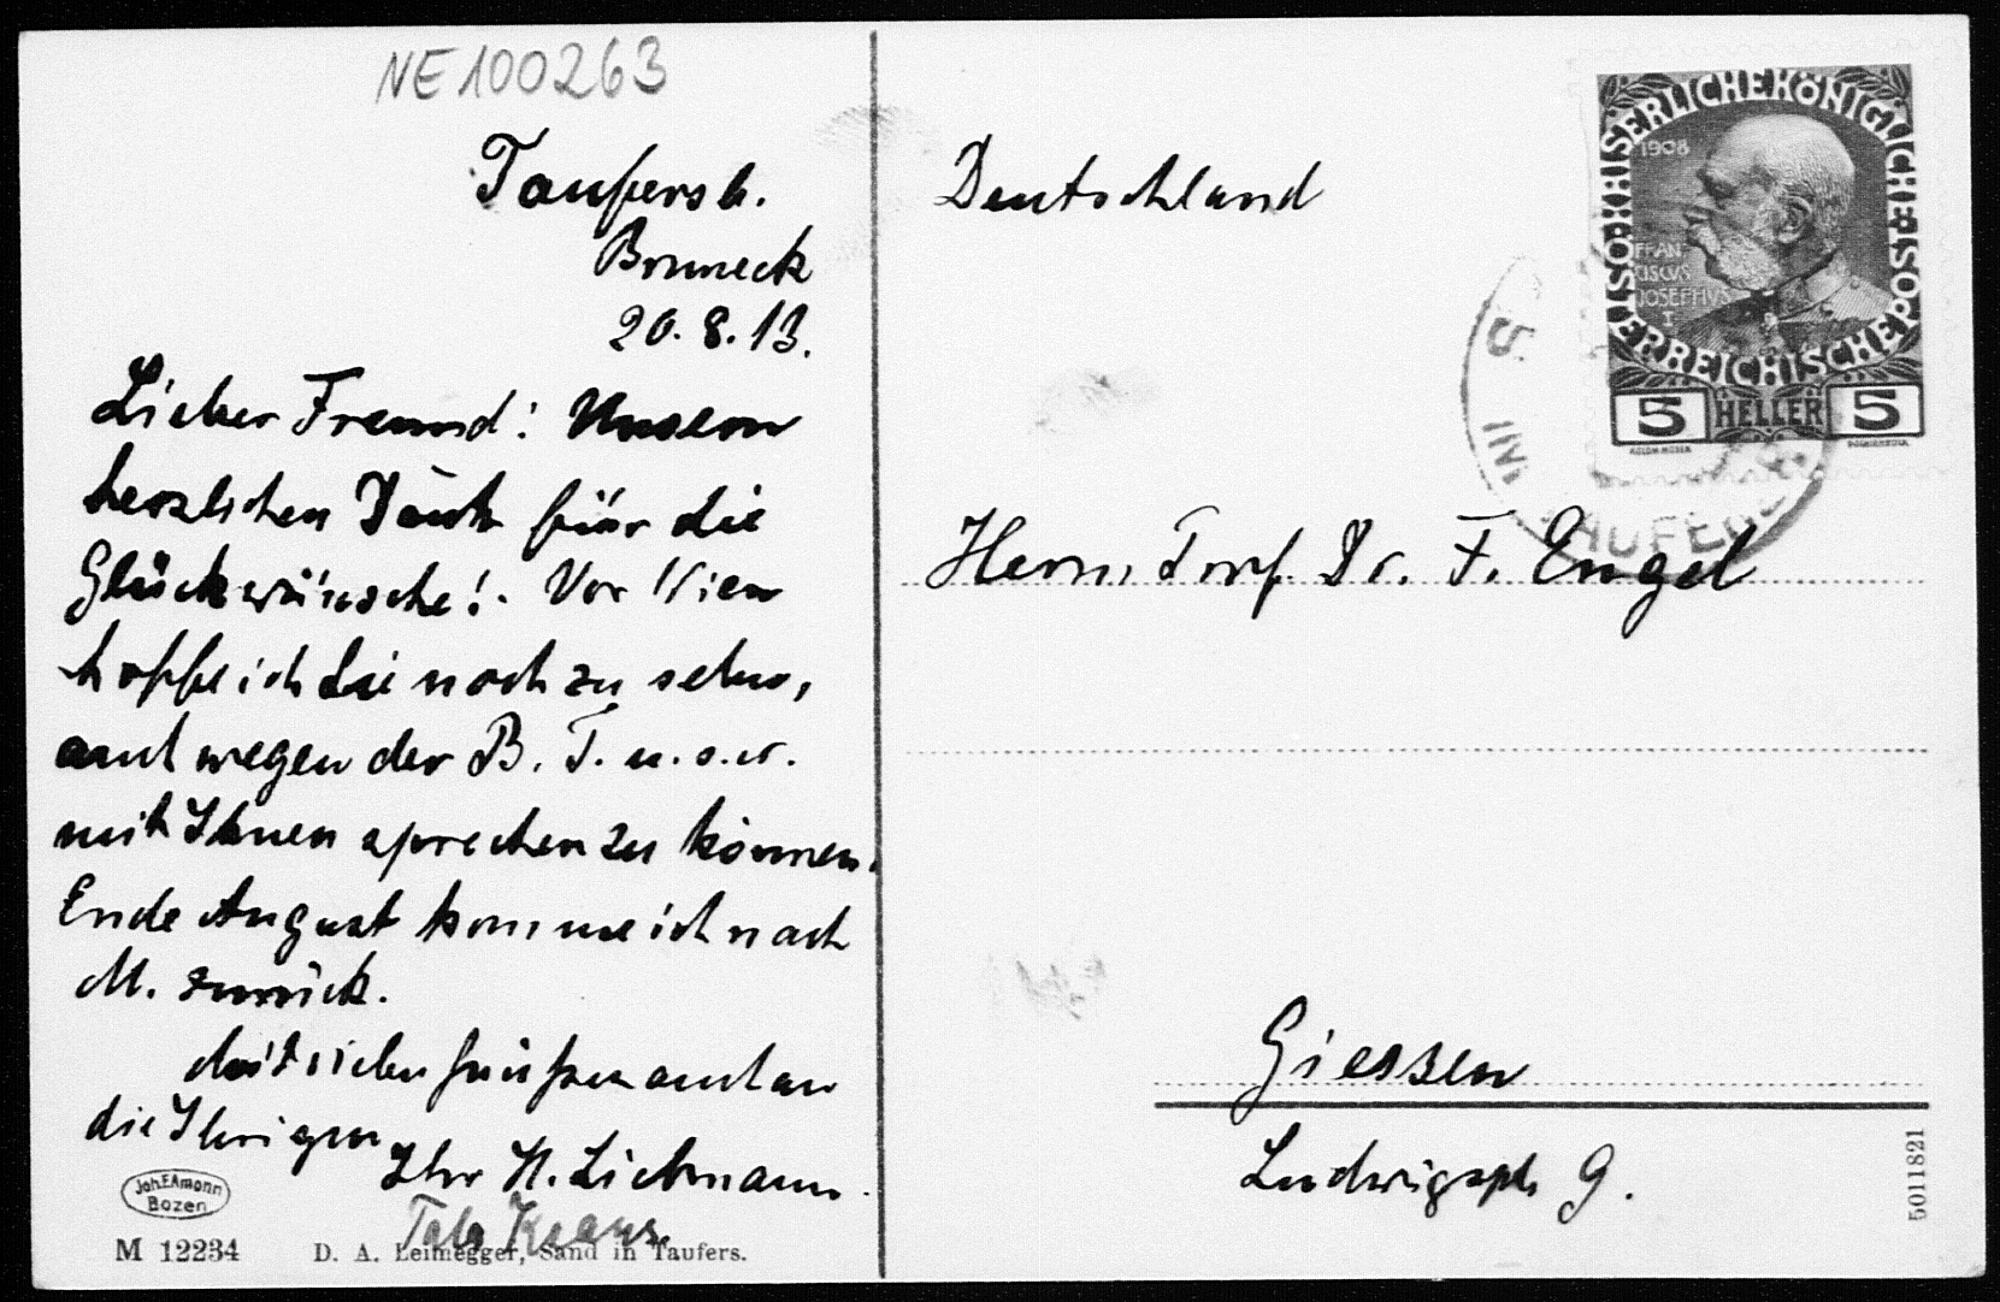 NE100263
Taufers b.
Bruneck
20.8.13.
Lieber Freund! Unsern
herzlichen Dank für die
Glückwünsche! Vor Wien
hoffe ich Sie noch zu sehen,
auch wegen der B. T. u.s.w.
mit Ihnen sprechen zu können.
Ende August komme ich nach
M. zurück.
Mit vielen Grüßen auch an
die Ihrigen
Ihr H. Liebmann.
Joh.F.Amonn
Bozen
M 12234 D. A. Leimegger, Sand in Taufers.
Deutschland
Herrn Prof. Dr. F. Engel
Giessen
Ludwigspl. 9.
5011821
KAISERLICHE KÖNIGLICHE
ÖSTERREICHISCHE POST
1908
FRAN
CISCVS
JOSEPHVS
I
5 HELLER 5
KOLOM·MOSER
IN TAUFERS